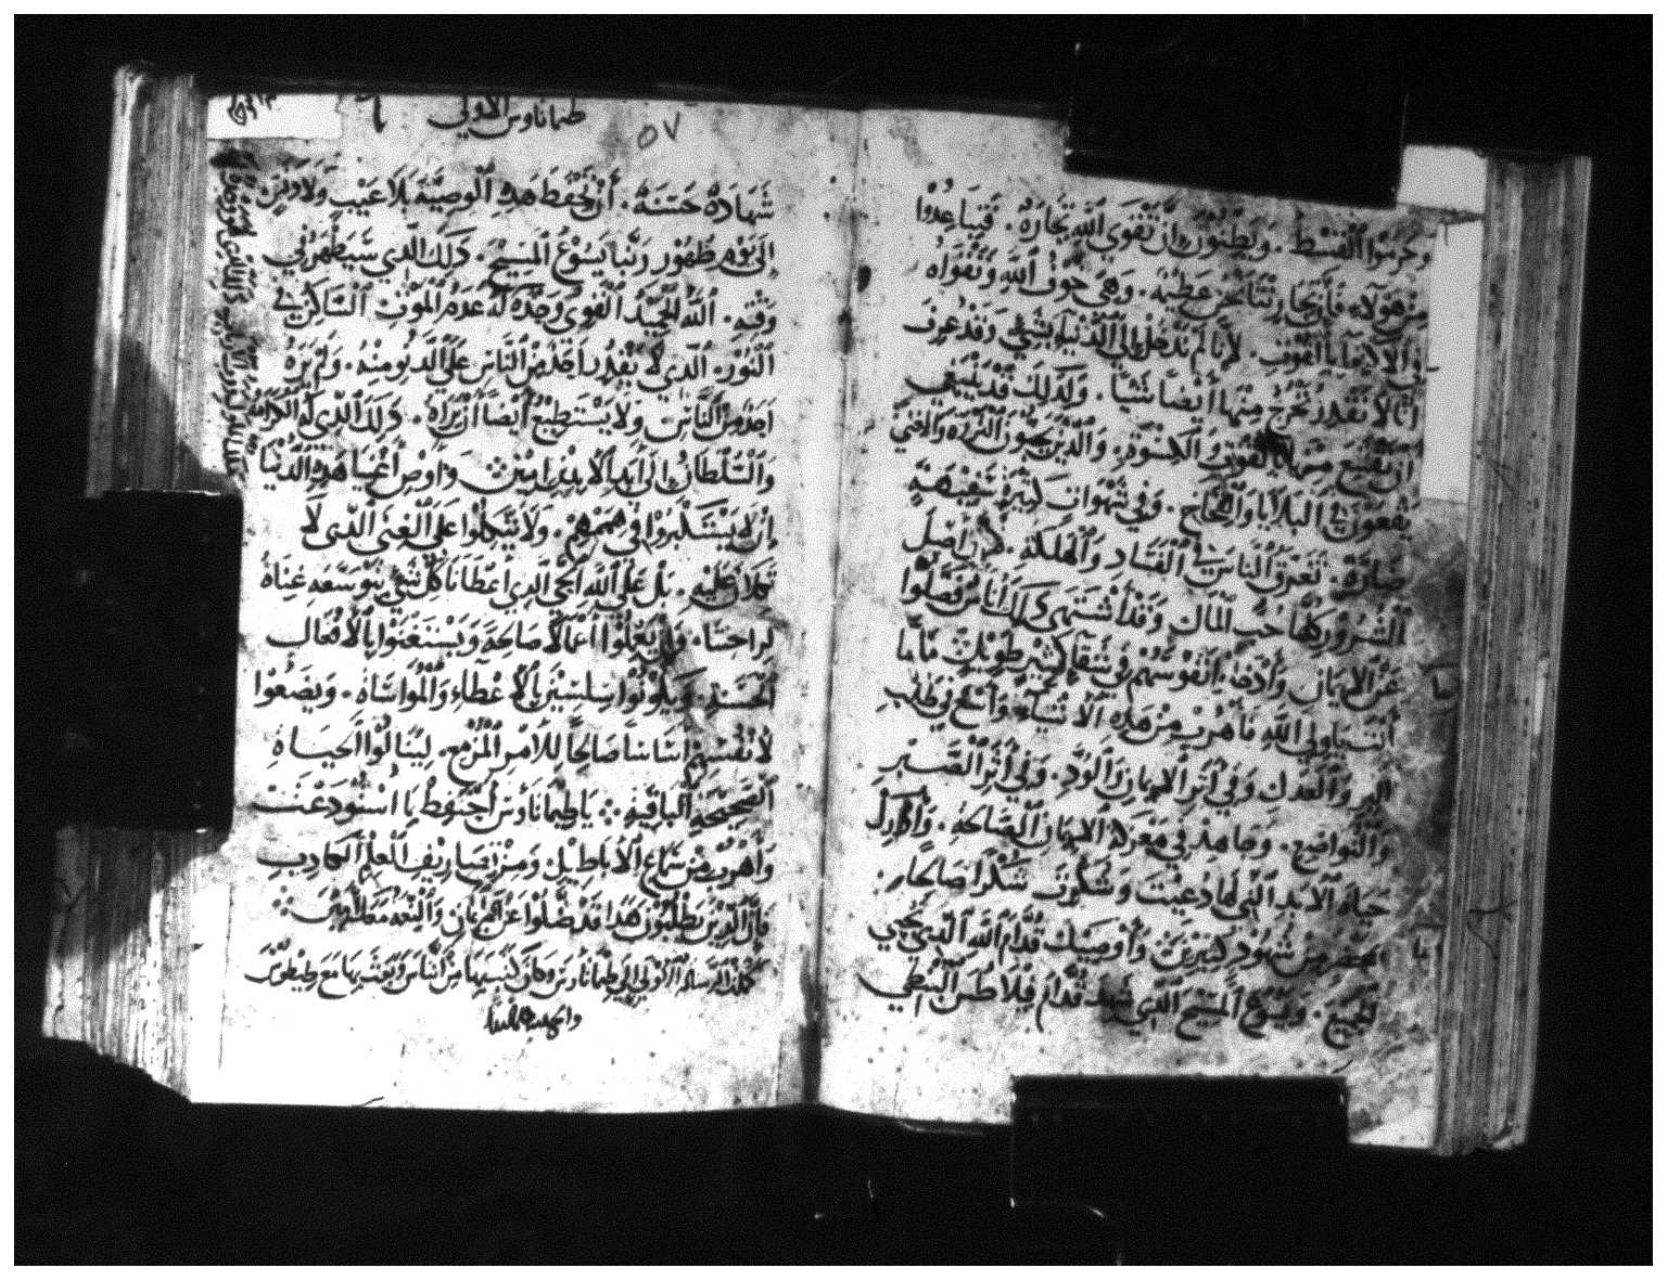 وَحُرِمُوا الْقِسْطَ . وَيَظِنُّونَ اَنَّ تَقْوَى اللَّهِ تِجَارَةٌ . فَتَبَاعِدُوا
مِنْ هَوُلَآءِ فَاَنَّ تِجَارَتَنَا نَحْنُ عَظِيْمَة . وَهِيَ خَوْفُ اللَّهِ وَتَقْوَاهُ
الاِكتِفَا بِالْقُوتِ . لاَِنَّا لَمْ نَدْخُلْ اِلَي الدُّنْيَا بِشَيْءٍ وَقَدْ عُرِفَ
اَنَّا لاَ نَقْدِرُ نَخْرُجُ مِنْهَا اَيْضًا شَيْئًا . وَلِذَلِكَ قَدْ يَنْبَغِي
اَنْ نَقْنَعَ مِنْهَا بِالْقُوْتِ وَالْكِسْوَةِ . وَالَّذِيْنَ يُحِبُّونَ الثَّرْوَةَ وَالْغِنَي
يَقَعُونَ فِي الْبَلاَيَا وَالْفِخَاخِ . وَفِي شَهَوَاتٍ كَثِيْرَةٍ سَفِيْهَةٍ
ضَارَّةٍ . تُغَرِقُ النَّاسَ فِي الْفَسَادِ وَالْهَلَكَةِ . لاَِنَّ اَصْلَ
الشُّرُوْرِ كُلِّهَا حُبُّ الْمَالِ وَقَدْ اُشْتَهَى ذَلِكَ اُنَاسٌ فَضَلُّوا
عَنِ الاِيْمَانِ وَاَدْخَلُوا نُفُوْسَهُمْ فِي شَقَآءٍ كَثِيْرٍ طَوِيْلٍ فَاَمَّا
اَنْتَ يَا وَلِي اللَّهِ فَاَهْرُبْ مِنْ هَذِهِ الاَشْيَآءِ وَاَسْعَ فِي طَلَبِ
الْبِرِّ وَالْعَدْلِ وَفِي اَثَرِ الاِيْمَانِ وَالْوُدِّ . وَفِي اَثَرِ الصَّبْرِ
وَالتَّوَاضُعِ . وَجَاهِدْ فِي مَعْرَكَةِ الاِيْمَانِ الصَّالِحَةِ . وَاَدْرِكْ
حَيَاةَ الاَبَدِ الَّتِي لَهَا دُعِيْتَ وَشَكَرْتَ شُكْرًا صَالِحًا .
بِمَحْضَرٍ مِنْ شُهُودٍ كَثِيْرِيْنَ وَأُوْصِيْكَ قُدَّامَ اللَّهِ الَّذِي يُحْيِي
الْجَمِيعَ . وَيَسُوْعَ الْمَسِيْحِ الَّذِي شَهِدَ قُدَّامَ فِيْلاَطُسَ الْبُنْطِي
طيماتاوس الاولي
٥٧
شَهَادَةً حَسَنَةً . أَنْ تَحْفَظَ هَذِهِ الْوَصِيَّةَ بِلاَ عَيْبٍ وَلاَ دَنَسٍ
اِلَى يَوْمِ ظُهُوْرِ رَبِّنَا يَسُوْعَ الْمَسِيْحِ . ذَلِكَ الَّذِي سَيُظْهِرُ فِي
وَقْتِهِ . اللَّهُ الْمَجِيْدُ الْقَوِي وَحْدَهُ لَهُ عَدَمُ الْمَوْتِ السَّاكِنُ فِي
النُّوْرِ . الَّذِي لاَ يَقْدِرُ اَحَدٌ مِنَ النَّاسِ عَلَى الدَّنُوِ مِنْهُ . وَلَمْ يَرَهُ
اَحَدٌ مِنَ النَّاسِ وَلاَ يَسْتَطِيْعُ اَيْضًا اَنْ يَرَاهُ . ذَلِكَ الَّذِي لَهُ الْكَرَامَةُ
وَالسُّلْطَانُ اِلَى اَبَدِ الاَبَدِ اَمِيْن ⁘ وَاَوْصِ اَغْنِيَا هَذِهِ الدُّنْيَا
اِنْ لاَ يَسْتَكْبِرُوا فِي هِمَمِهِمْ . وَلاَ يَتَّكِلُوا عَلَى الْغِنَى الَّذِي لاَ
تُكْلاَنَ عَلَيْهِ . بَلْ عَلَى اللَّهِ الْحَيِّ الَّذِي اَعْطَانَا كُلَّ شَيْءٍ بِتَوَسُّعِهِ غِنَاهُ
لِرَاحَتِنَا . وَاَنْ يَعْمَلُوا اَعْمَالاً صَالِحَةً وَيَسْتَغْنَوْا بِالاَفْعَالِ
الْحَسَنَةِ . وَيَكُوْنُوا سَلِسِيْنَ بِالاَعْطَاءِ وَالْمُوَاسَاةِ . وَيَضَعُوْا
لاَنْفُسِهِمْ اَسَاسًا صَالِحًا لِلاَمْرِ الْمُزْمِعِ . لِيَنَالُوْا الْحَيَاةَ
الصَّحِيْحَةَ الْبَاقِيَةِ ⁘ يَا طِيْمَاتَاوُسَ اِحْتَفِظْ بِمَا اسْتُوْدِعْتَ
وَاَهْرُبْ مِنْ سَمَاعِ الاَبَاطِيْلِ وَمِنْ تَصَارِيْفِ الْعِلْمِ الْكَاذِبِ
فَاِنَّ الَّذِيْنَ يَطْلُبُوْنَ هَذَا قَدْ ضَلُّوْا عَنِ الاِيْمَانِ وَالنِّعْمَةُ مَعَكَ اَمِيْن
كَمُلَتِ الرِّسَالَةُ الاُوْلَى اِلَى طِيْمَاتَاوُسَ وَكَانَ كَتَبَ بِهَا مِنْ وَبَعَثَ بِهَا مَعَ طِيْطُوْسَ